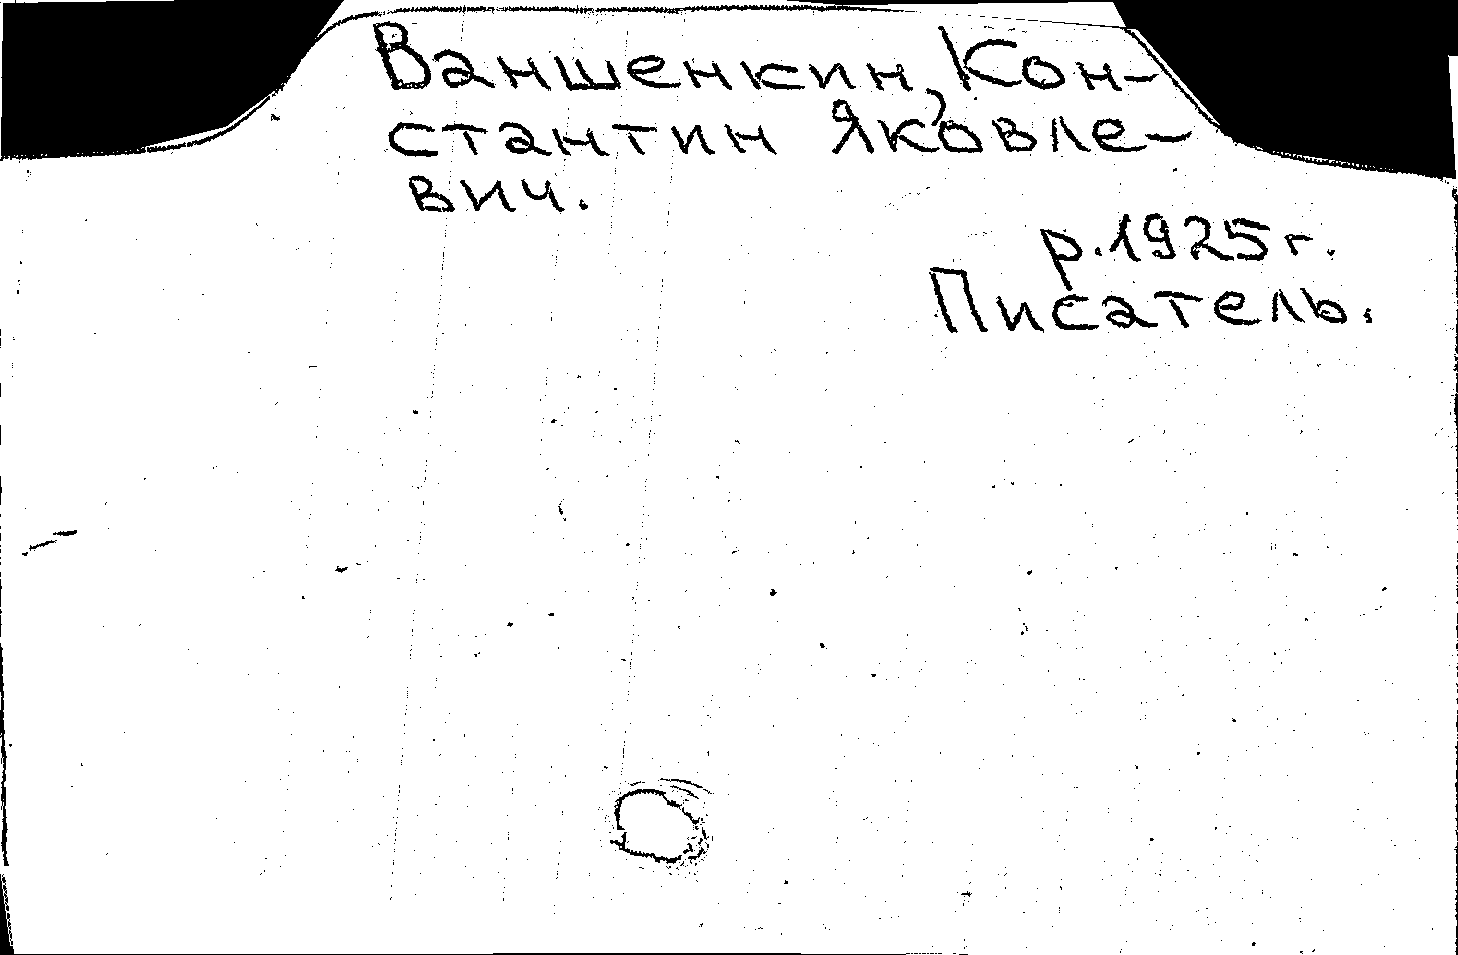 Ваншенкин, Кон-
стантин Яковле-
вич.
р. 1925 г.
Писатель.